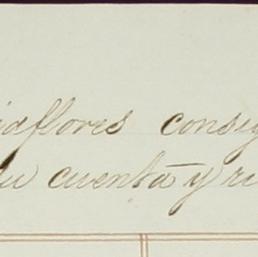 idflores consig
su cuenta y ri